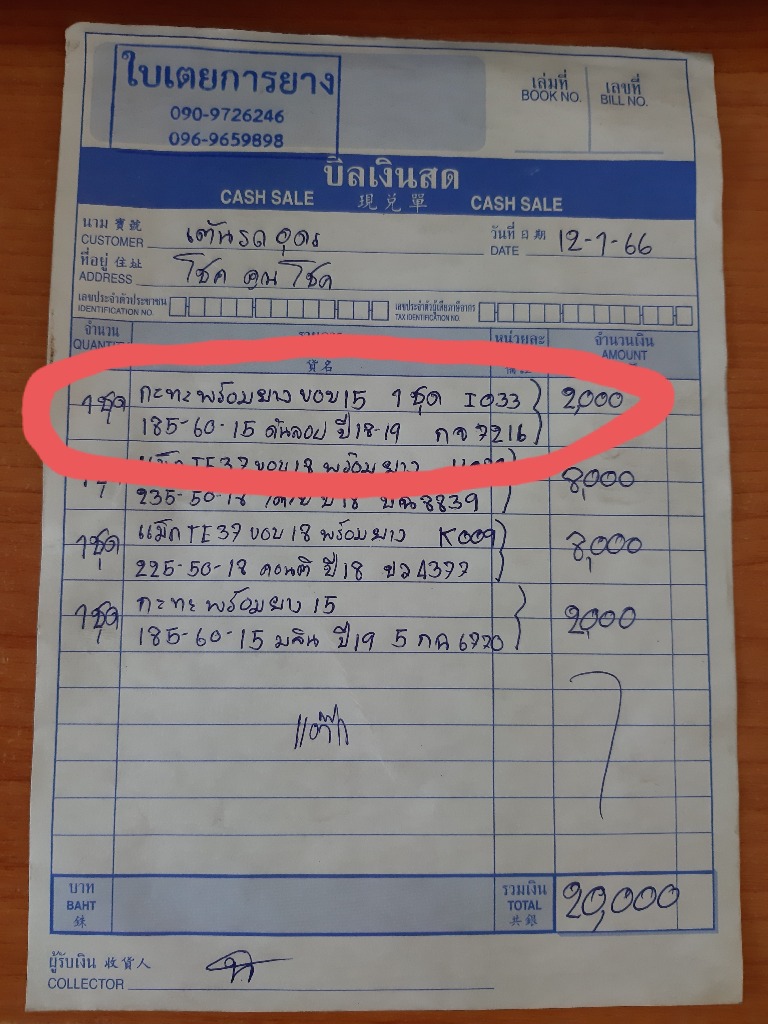 ใบเตยการยาง
090-9726246
096-9659898
เล่มที่ เลขที่
BOOK NO. BILL NO.
บิลเงินสด
CASH SALE 現兌單 CASH SALE
นาม 寶號 วันที่ 日期
CUSTOMER เต้นรถอุดร DATE 12-1-66
ที่อยู่ 住址
ADDRESS โชค คูณ โชค
เลขประจำตัวประชาชน เลขประจำตัวผู้เสียภาษีอากร
IDENTIFICATION NO. TAX IDENTIFICATION NO.
จำนวน หน่วยละ จำนวนเงิน
貨名 AMOUNT
1ชุด กะทะพร้อมยาง ขอบ 15 1 ชุด I033 2,000
185-60-15 ดันลอป ปี 18-19 กจ 7216
TE37 ขอบ 18 พร้อมยาง 8,000
235-50-18 ปี 18 8839
1ชุด แม็ก TE37 ขอบ 18 พร้อมยาง K009 8,000
225-50-18 คอนติ ปี 18 ขว 4377
1ชุด กะทะพร้อมยาง 15 2,000
185-60-15 มลิน ปี 19 5 กฉ 6720
บาท รวมเงิน
BAHT TOTAL 20,000
銖 共銀
ผู้รับเงิน 收貨人
COLLECTOR